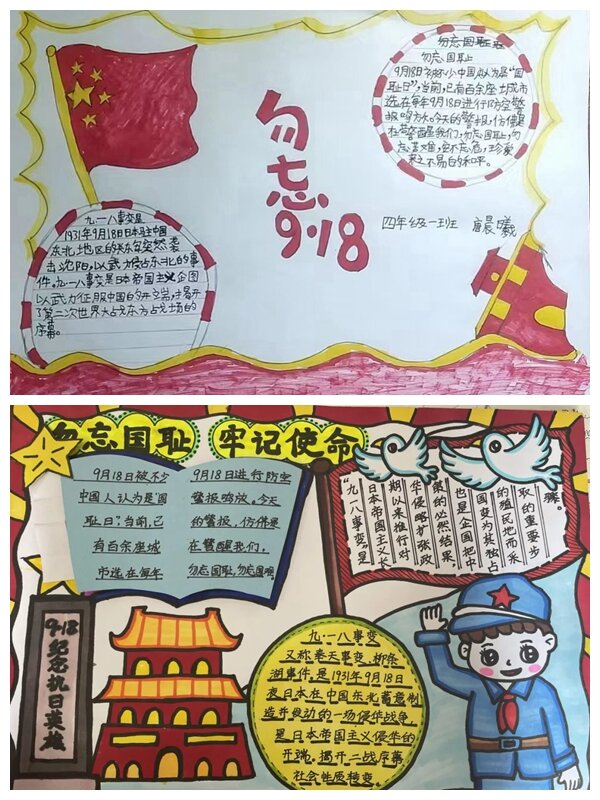 勿忘国耻
勿忘国耻
9月18日被不少中国人认为是“国
耻日”,当前,已有百余座城市
选在每年9月18日进行防空警
报鸣放。今天的警报,仿佛是
在警醒我们,勿忘国耻,勿
忘苦难,安不忘危,珍爱
来之不易的和平。
勿忘
9·18
四年级一班 唐晨曦
九·一八事变是
1931年9月18日日本驻中国
东北地区的关东军突然袭
击沈阳,以武力侵占东北的事
件。九一八事变是日本帝国主义企图
以武力征服中国的开端,揭开
了第二次世界大战东方战场的
序幕。
勿忘国耻 牢记使命
9月18日被不少
中国人认为是“国
耻日”,当前,已
有百余座城
市选在每年
9月18日进行防空
警报鸣放。今天
的警报,仿佛是
在警醒我们,
勿忘国耻,勿忘国难
“九一八事变”是
日本帝国主义长
期以来推行对
华侵略扩张政
策的必然结果,
也是企图把中
国变为其独占
的殖民地而采
取的重要步
骤。
9·18
纪念抗日英雄
九·一八事变
又称奉天事变、柳条
湖事件,是1931年9月18日
夜日本在中国东北蓄意制
造并发动的一场侵华战争,
是日本帝国主义侵华的
开端。揭开二战序幕
社会性质转变。